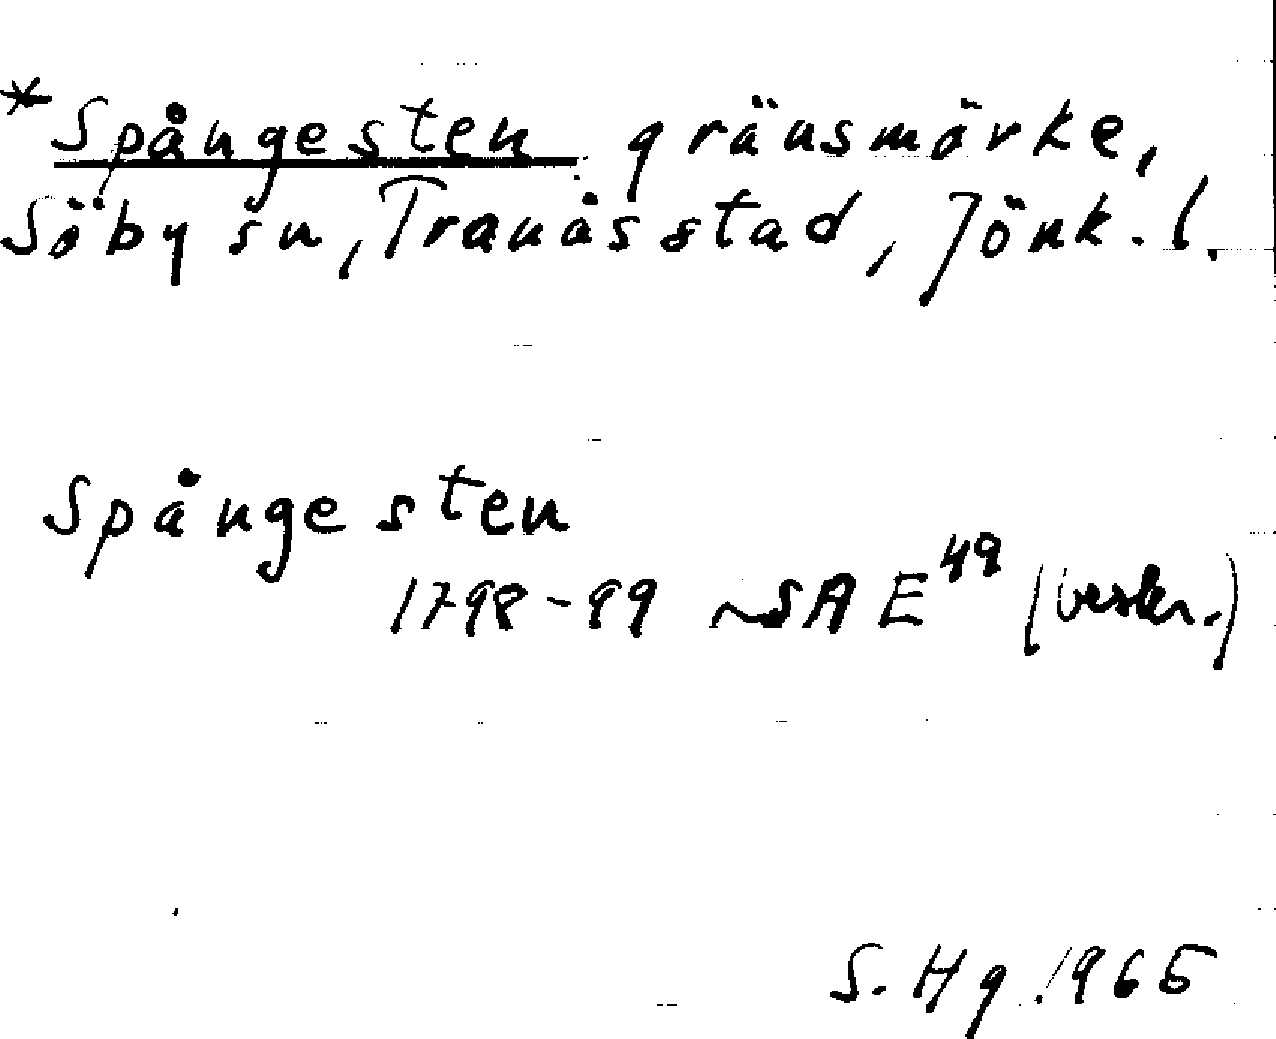 *Spångesten gränsmärke,
Söby sn, Tranås stad, Jönk. l.
Spångesten
1798-99 ~ SAE⁴⁹ (beskr.)
S. Hg. 1965